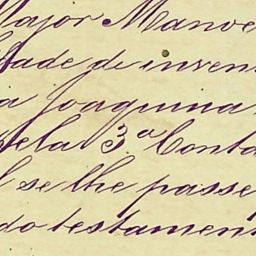 Major Manoe
dade de inven
a Joaquina
pela 3ª Conta
l se lhe passe
do testament